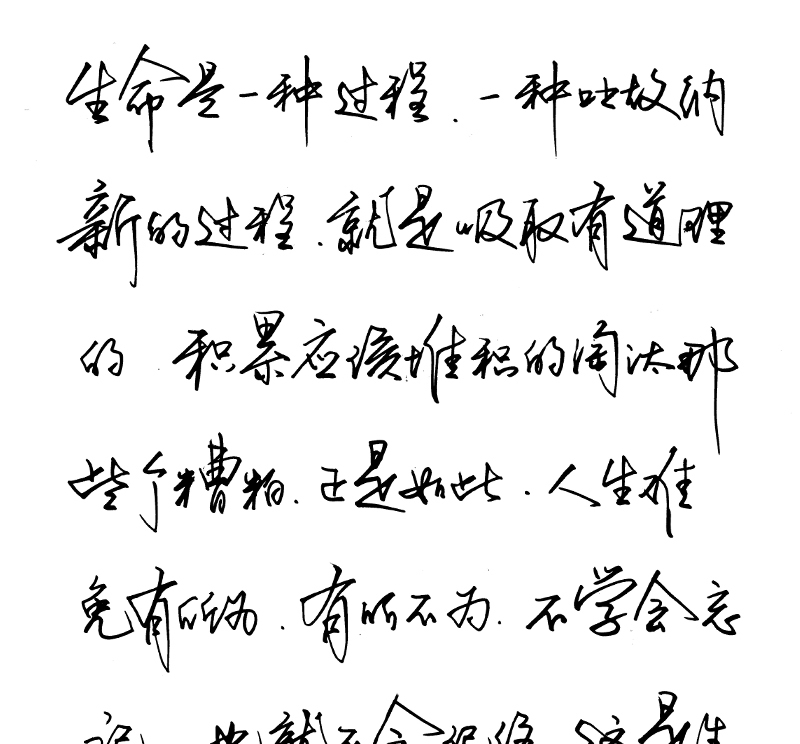 生命是一种过程.一种吐故纳
新的过程.就是吸取有道理
的 积累应该堆积的淘汰那
些个糟粕.正是如此.人生难
免有所为.有所不为.不学会忘
记 也就不会记住 这是生